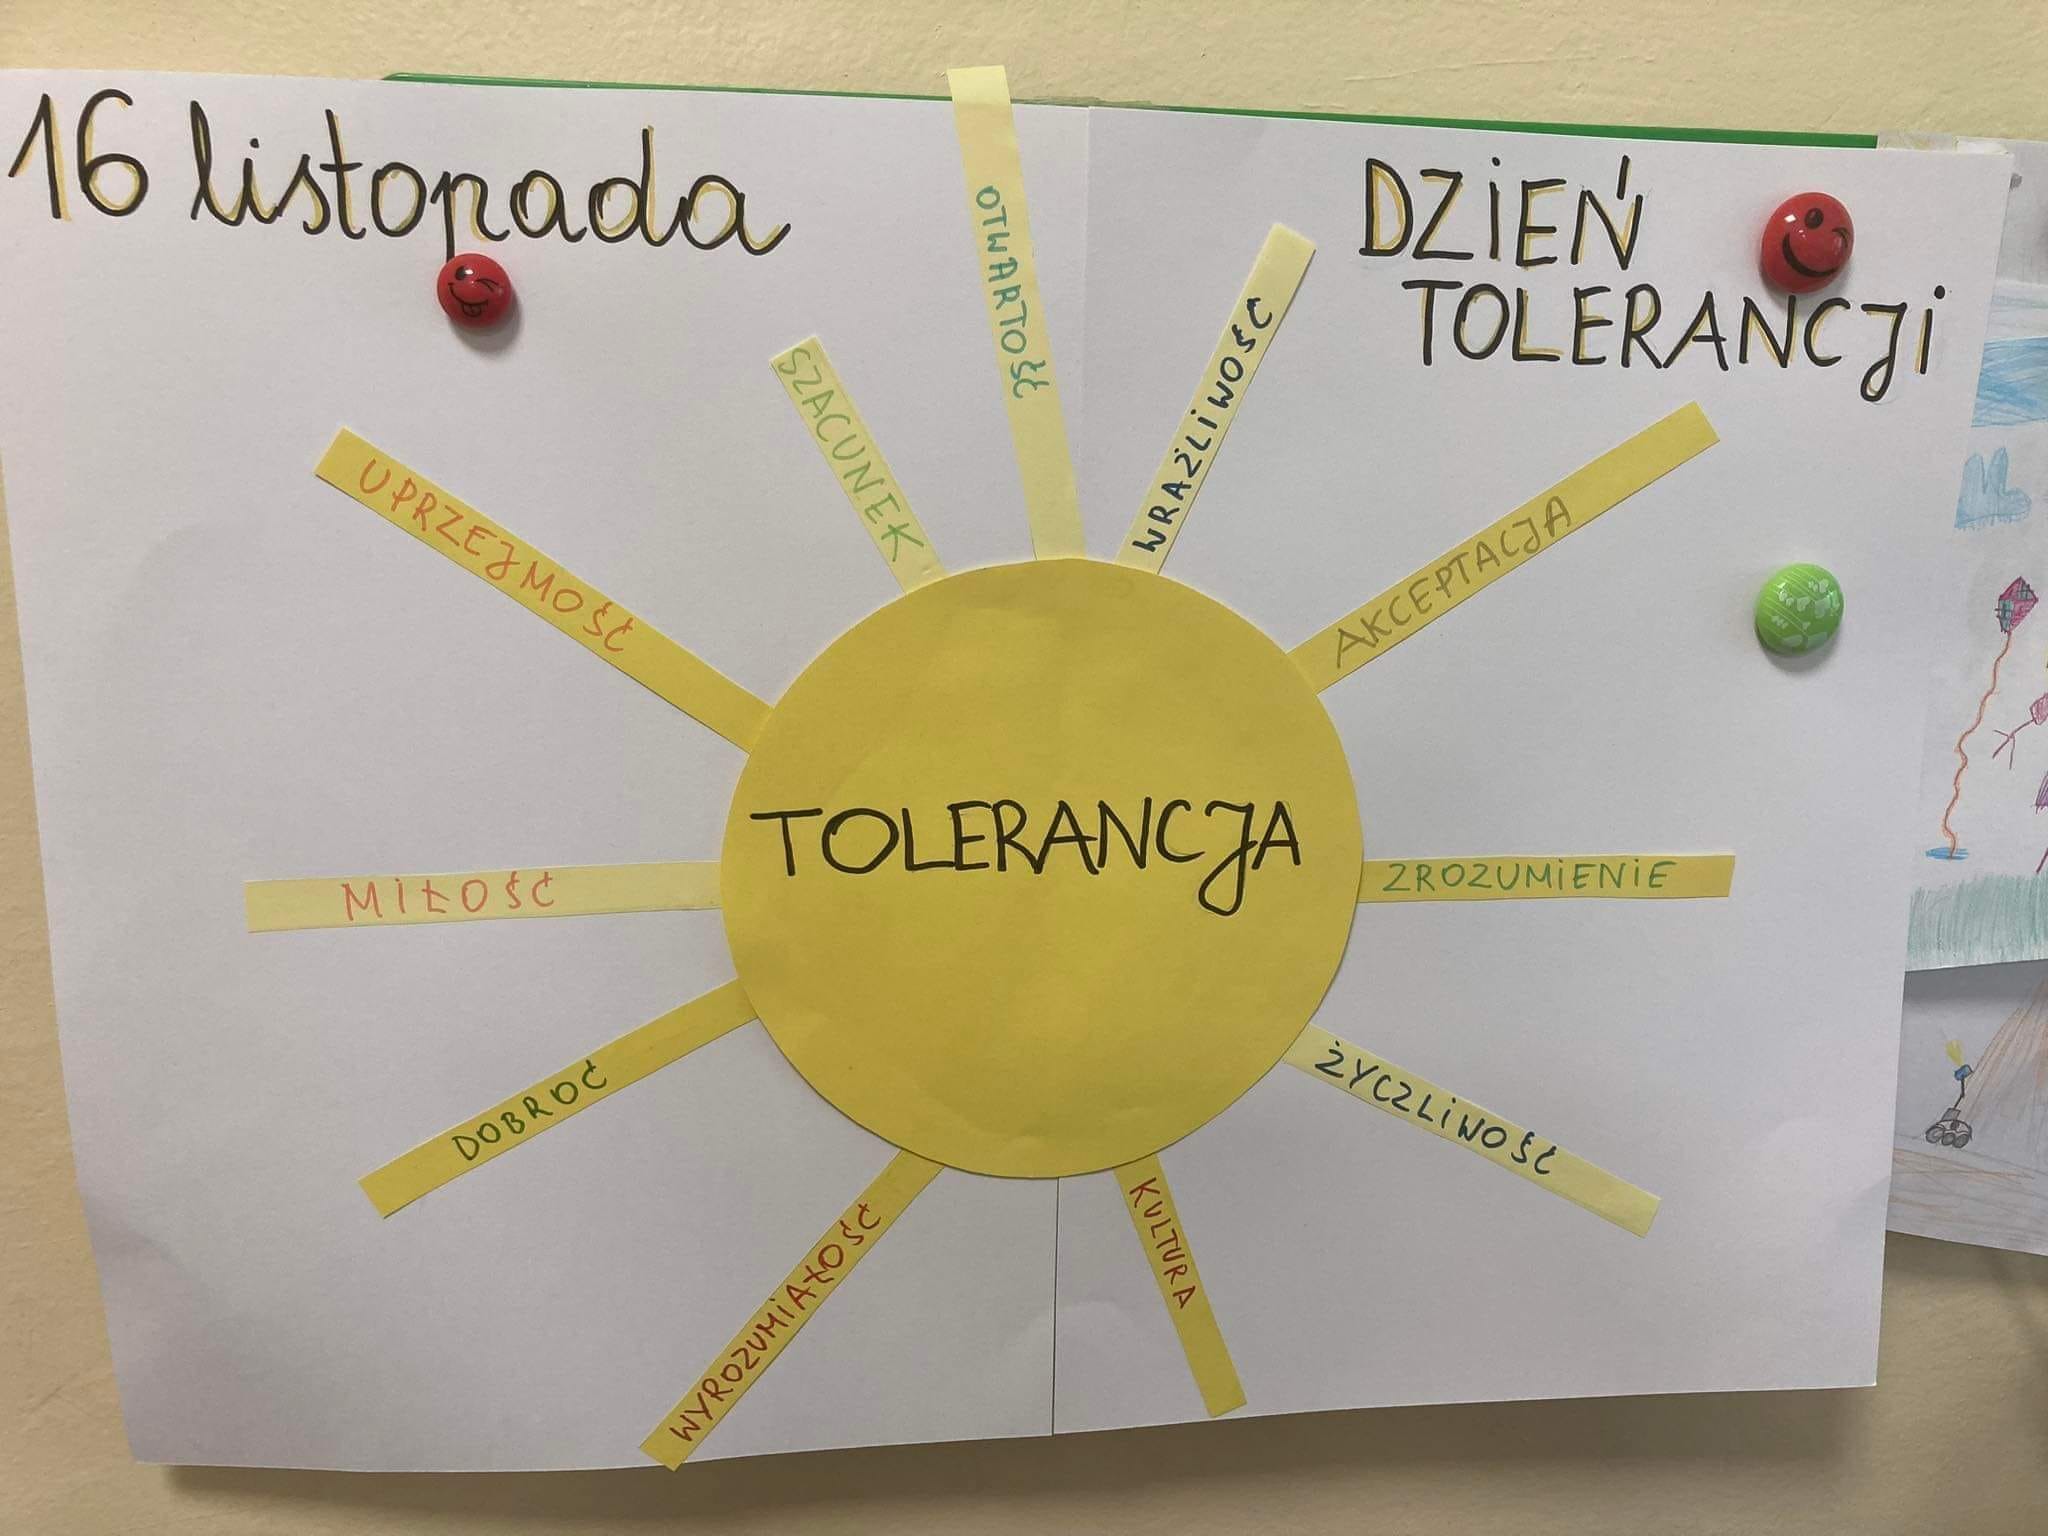 16 listopada
DZIEŃ
TOLERANCJI
OTWARTOŚĆ
WRAŻLIWOŚĆ
SZACUNEK
AKCEPTACJA
UPRZEJMOŚĆ
TOLERANCJA
MIŁOŚĆ
ZROZUMIENIE
DOBROĆ
ŻYCZLIWOŚĆ
WYROZUMIAŁOŚĆ
KULTURA